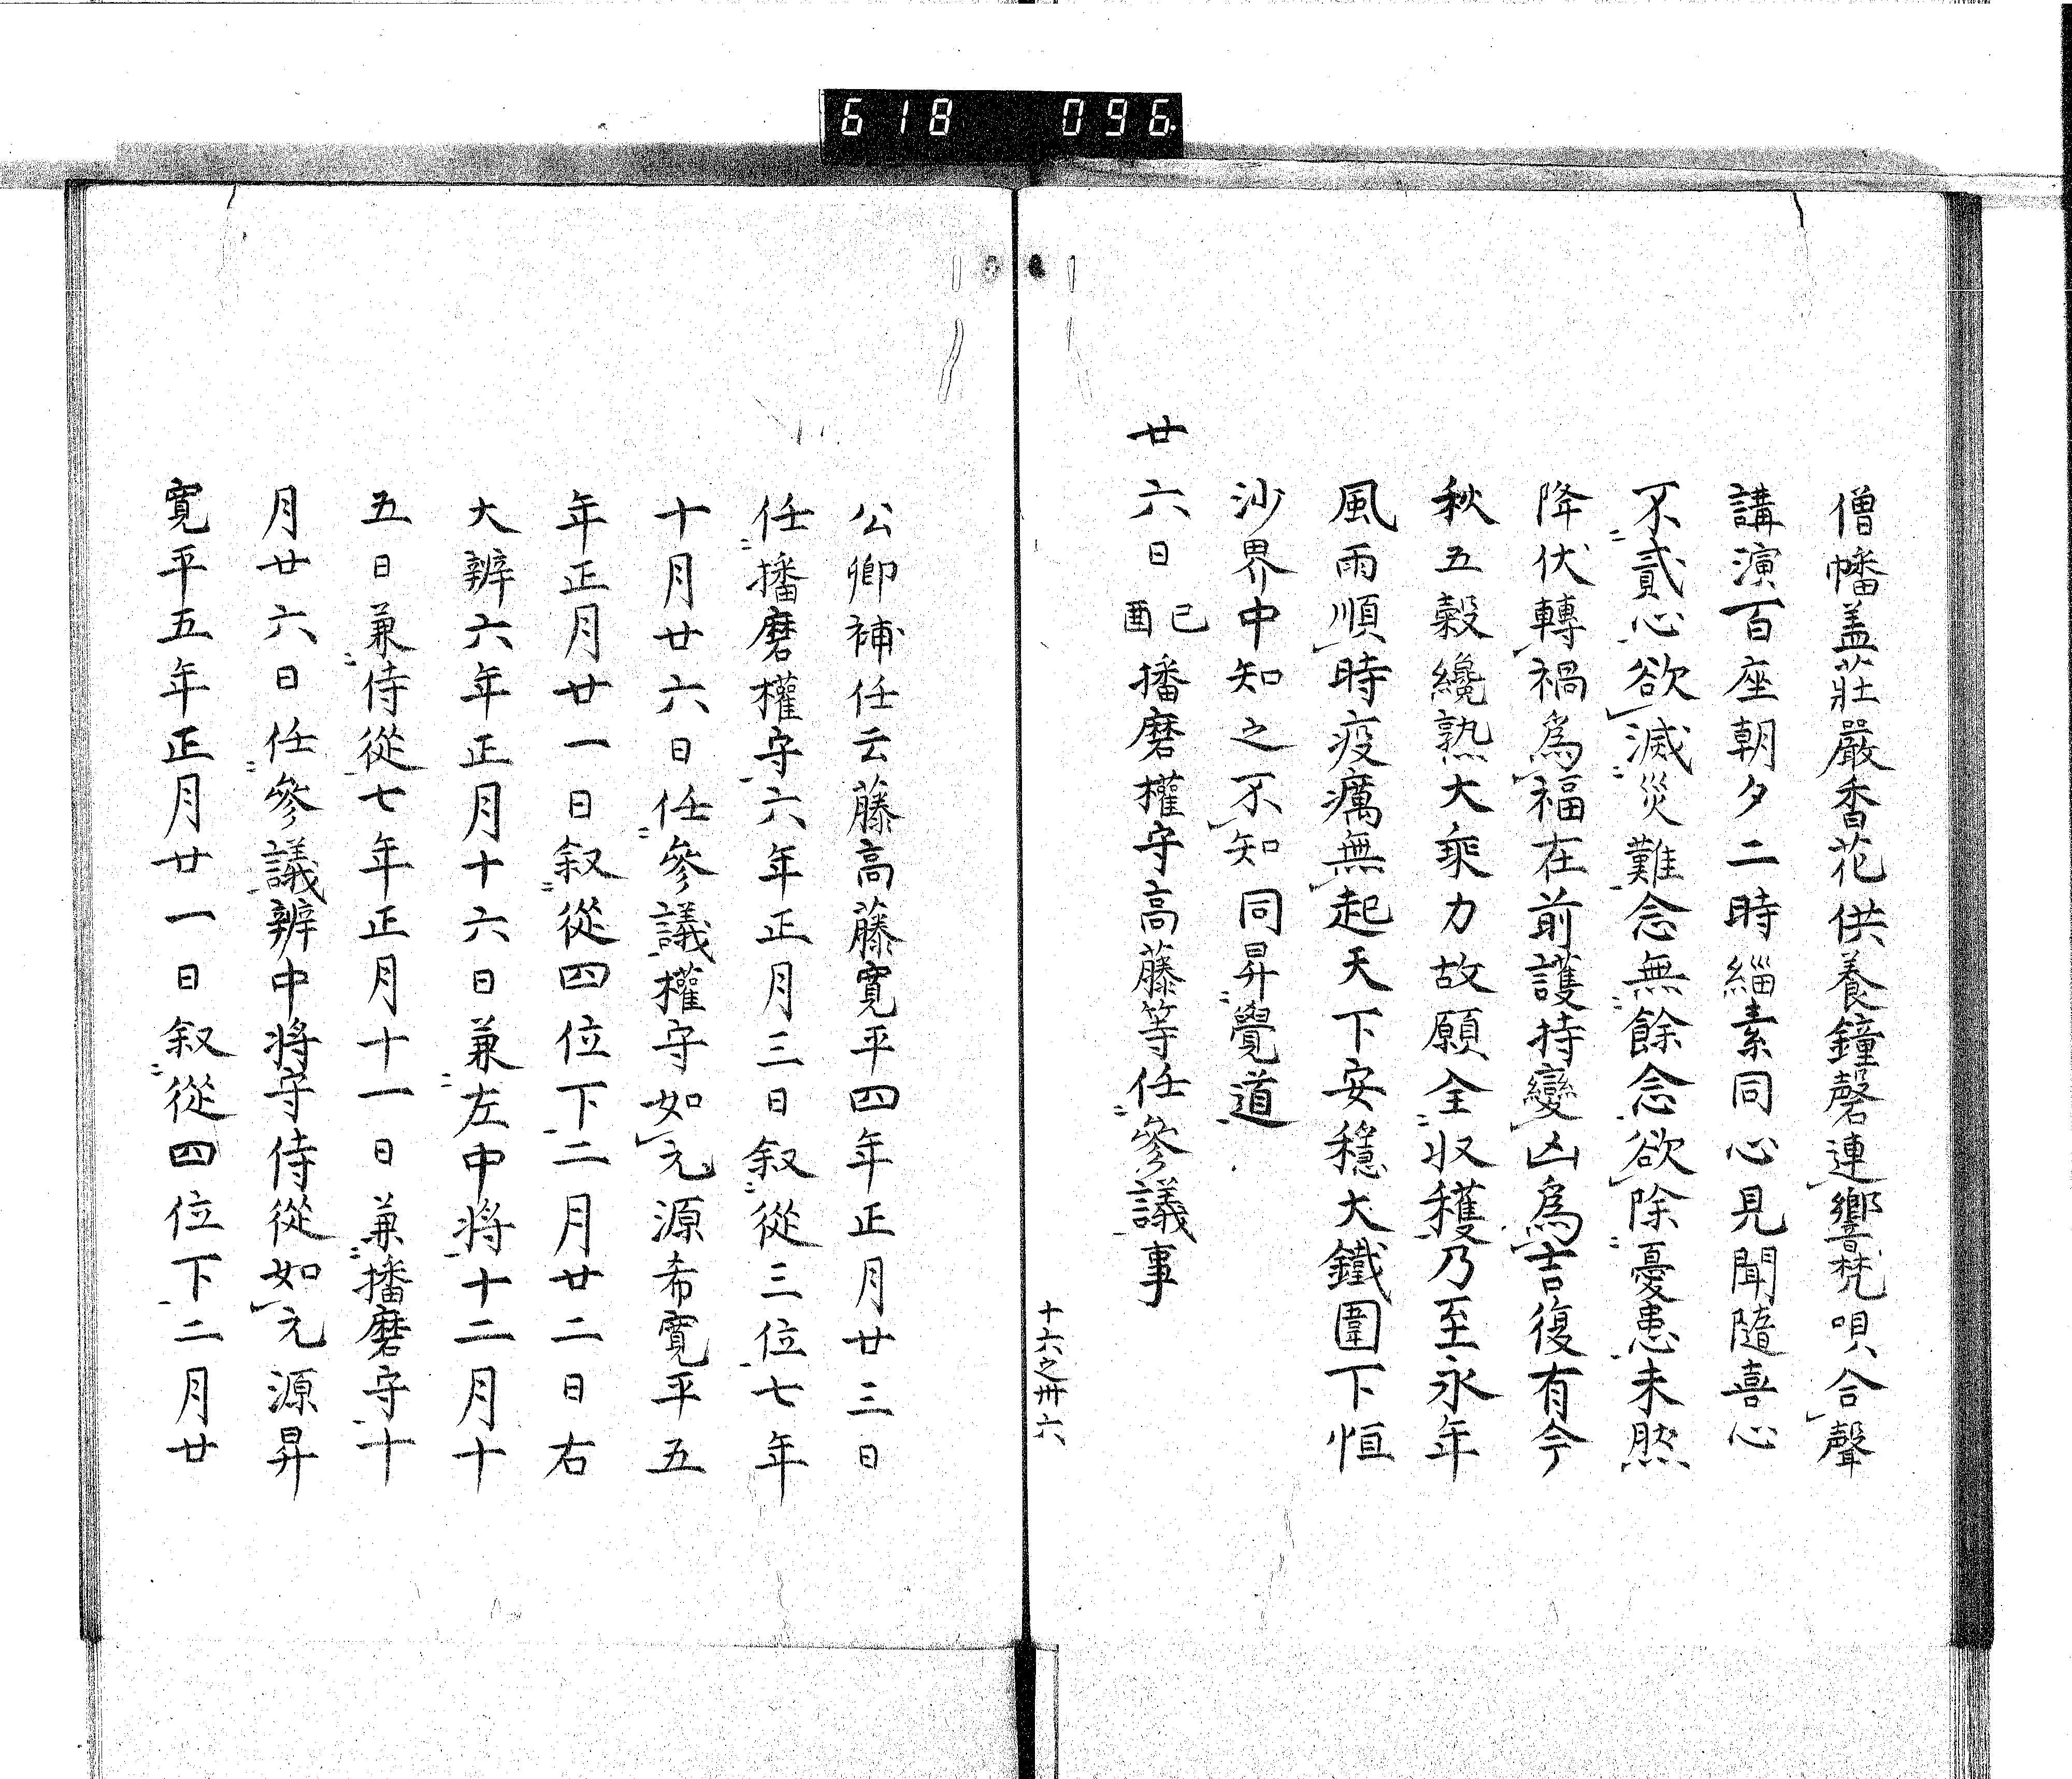 618 096
僧幡盖莊嚴香花供養鐘磬連響梵唄合聲
講演百座朝夕二時緇素同心見聞隨喜心
不貳心欲滅災難念無餘念欲除憂患未然
降伏轉禍為福在前護持變凶為吉復有今
秋五穀纔熟大乘力故願全収穫乃至永年
風雨順時疫癘無起天下安穩大鐵圍下恒
沙界中知之不知同昇覺道
廿六日己酉播磨權守高藤等任參議事
十六之卅六
公卿補任云藤高藤寛平四年正月廿三日
任播磨權守六年正月三日叙從三位七年
十月廿六日任參議權守如元源希寛平五
年正月廿一日叙從四位下二月廿二日右
大辨六年正月十六日兼左中將十二月十
五日兼侍從七年正月十一日兼播磨守十
月廿六日任參議辨中將守侍從如元源昇
寛平五年正月廿一日叙從四位下二月廿